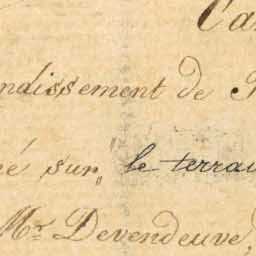 Ca
ndissement de
cé sur, le terrai
Mr. Devendeuve,